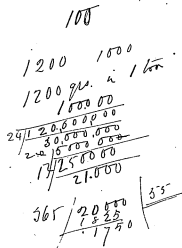 100
1200 1000
1200 grs. in 1 ton
10000
24/120,000,000
30,000,000
5000000
12/250000
21.000
365/20000 55
1825
1750